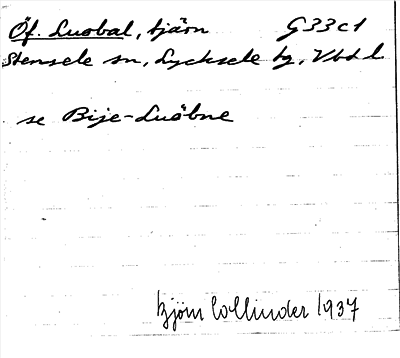 Öf. Luobal, tjärn G33c1
Stensele sn, Lycksele tg, Vbd l
se Bije-Luöbne
Björn Collinder 1937